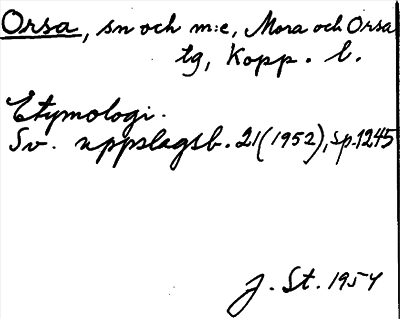 Orsa, sn och m:e, Mora och Orsa
tg, Kopp. l.
Etymologi.
Sv. uppslagsb. 21(1952), sp.1245
J. St. 1954